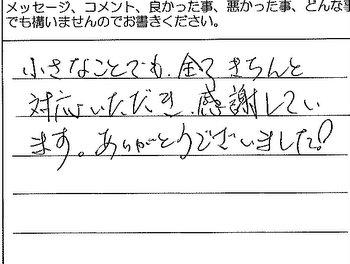 メッセージ、コメント、良かった事、悪かった事、どんな事
でも構いませんのでお書きください。
小さなことでも、全てきちんと
対応いただき、感謝してい
ます。ありがとうございました!